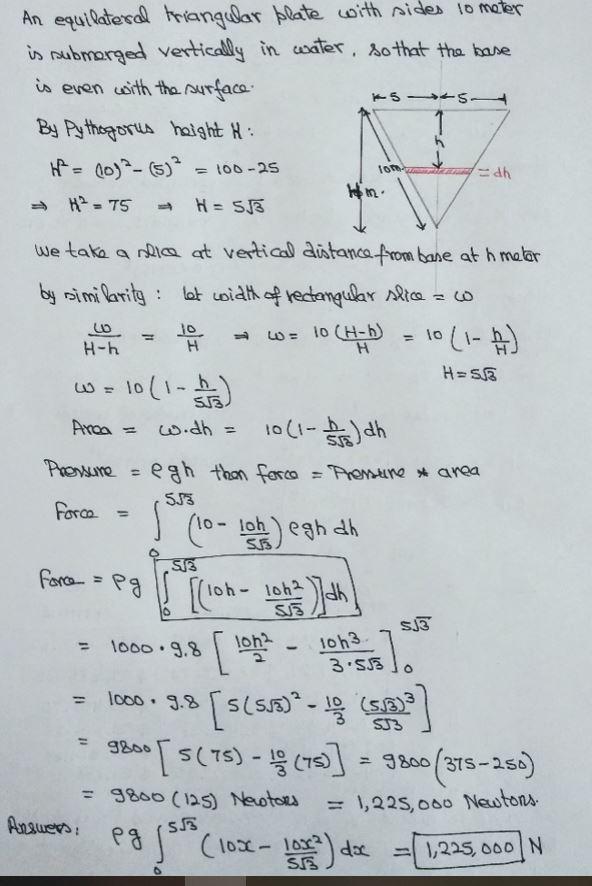 An equilateral triangular plate with sides 10 meter
is submerged vertically in water, so that the base
is even with the surface.
5 5
By Pythagorus height H:
h
10m
= dh
H m.
H² = (10)² - (5)² = 100 - 25
⇒ H² = 75 ⇒ H = 5√3
we take a slice at vertical distance from base at h meter
by similarity : let width of rectangular slice = ω
ω/(H-h) = 10/H ⇒ ω = 10 (H-h)/H = 10 (1 - h/H)
H = 5√3
ω = 10 (1 - h/5√3)
Area = ω.dh = 10 (1 - h/5√3) dh
Pressure = ρgh then force = Pressure * area
Force = ∫₀^5√3 (10 - 10h/5√3) ρgh dh
Force = ρg ∫₀^5√3 [(10h - 10h²/5√3)] dh
= 1000 · 9.8 [10h²/2 - 10h³/3·5√3]₀^5√3
= 1000 · 9.8 [5(5√3)² - 10/3 (5√3)³/5√3]
= 9800 [5(75) - 10/3 (75)] = 9800 (375 - 250)
= 9800 (125) Newtons = 1,225,000 Newtons.
Answers: ρg ∫₀^5√3 (10x - 10x²/5√3) dx = 1,225,000 N